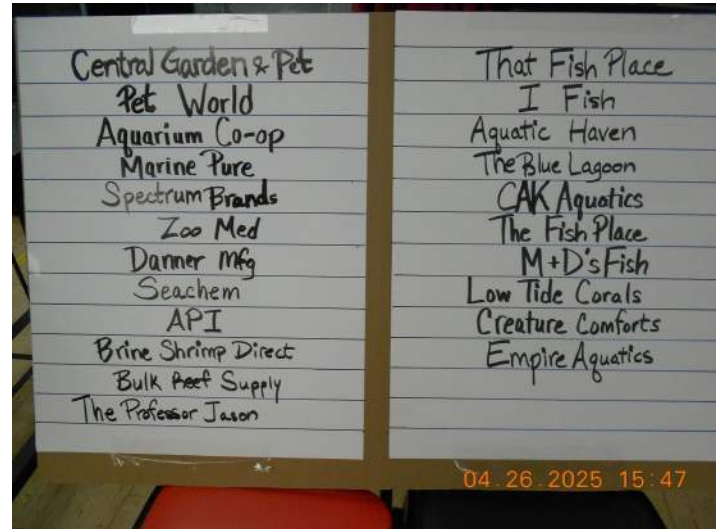 Central Garden & Pet
Pet World
Aquarium Co-op
Marine Pure
Spectrum Brands
Zoo Med
Danner Mfg
Seachem
API
Brine Shrimp Direct
Bulk Reef Supply
The Professor Jason
That Fish Place
I Fish
Aquatic Haven
The Blue Lagoon
CAK Aquatics
The Fish Place
M+D's Fish
Low Tide Corals
Creature Comforts
Empire Aquatics
04.26.2025 15:47